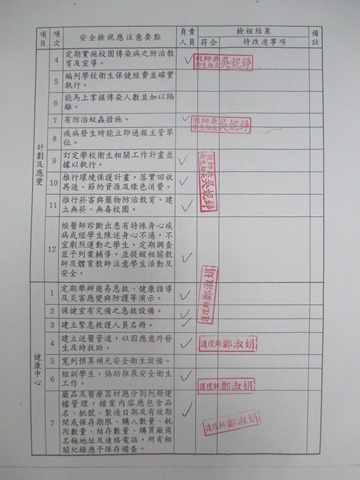 項目
項次
安全檢視應注意要點
負責人員
檢核結果
符合
待改進事項
備註
計劃及應變
4
定期實施校園傳染病之防治教
育及宣導。
教師兼衛生組長吳妮錚
5
編列學校衛生保健經費並確實
執行。
6
能馬上掌握傳染人數並加以隔
離。
7
有防治蚊蟲措施。
教師兼衛生組長吳妮錚
8
疾病發生時能立即通報主管單
位。
9
訂定學校衛生相關工作計畫並
據以執行。
10
推行環境保護計畫,落實回收
再造、節約資源及綠色消費。
教師兼衛生組長吳妮錚
11
推行菸害與藥物防治教育,建
立無菸、無毒校園。
12
經醫師診斷出患有特殊身心疾
病或經學生陳述身心不適,不
宜劇烈運動之學生,定期調查
並予列案輔導,並提醒相關教
師及體育教師注意學生活動及
安全。
健康中心
1
定期舉辦簡易急救、健康指導
及災害應變與防護等演示。
護理師鄭淑娟
2
保健室有完備之急救設備。
3
建立緊急救護人員名冊。
4
建立送醫管道,以因應意外發
生及時救助。
護理師鄭淑娟
5
寬列預算補充安全衛生設備。
6
組訓學生,協助推展安全衛生
工作。
護理師鄭淑娟
7
藥品及醫療器材應分別列冊建
檔管理,檔案內容應包含品
名、批號、製造日期及有效期
間或保存期限、購入數量、耗
用數量、結存數量、購買廠商
名稱地址及連絡電話,所有相
關紀錄應予保存備查。
護理師鄭淑娟